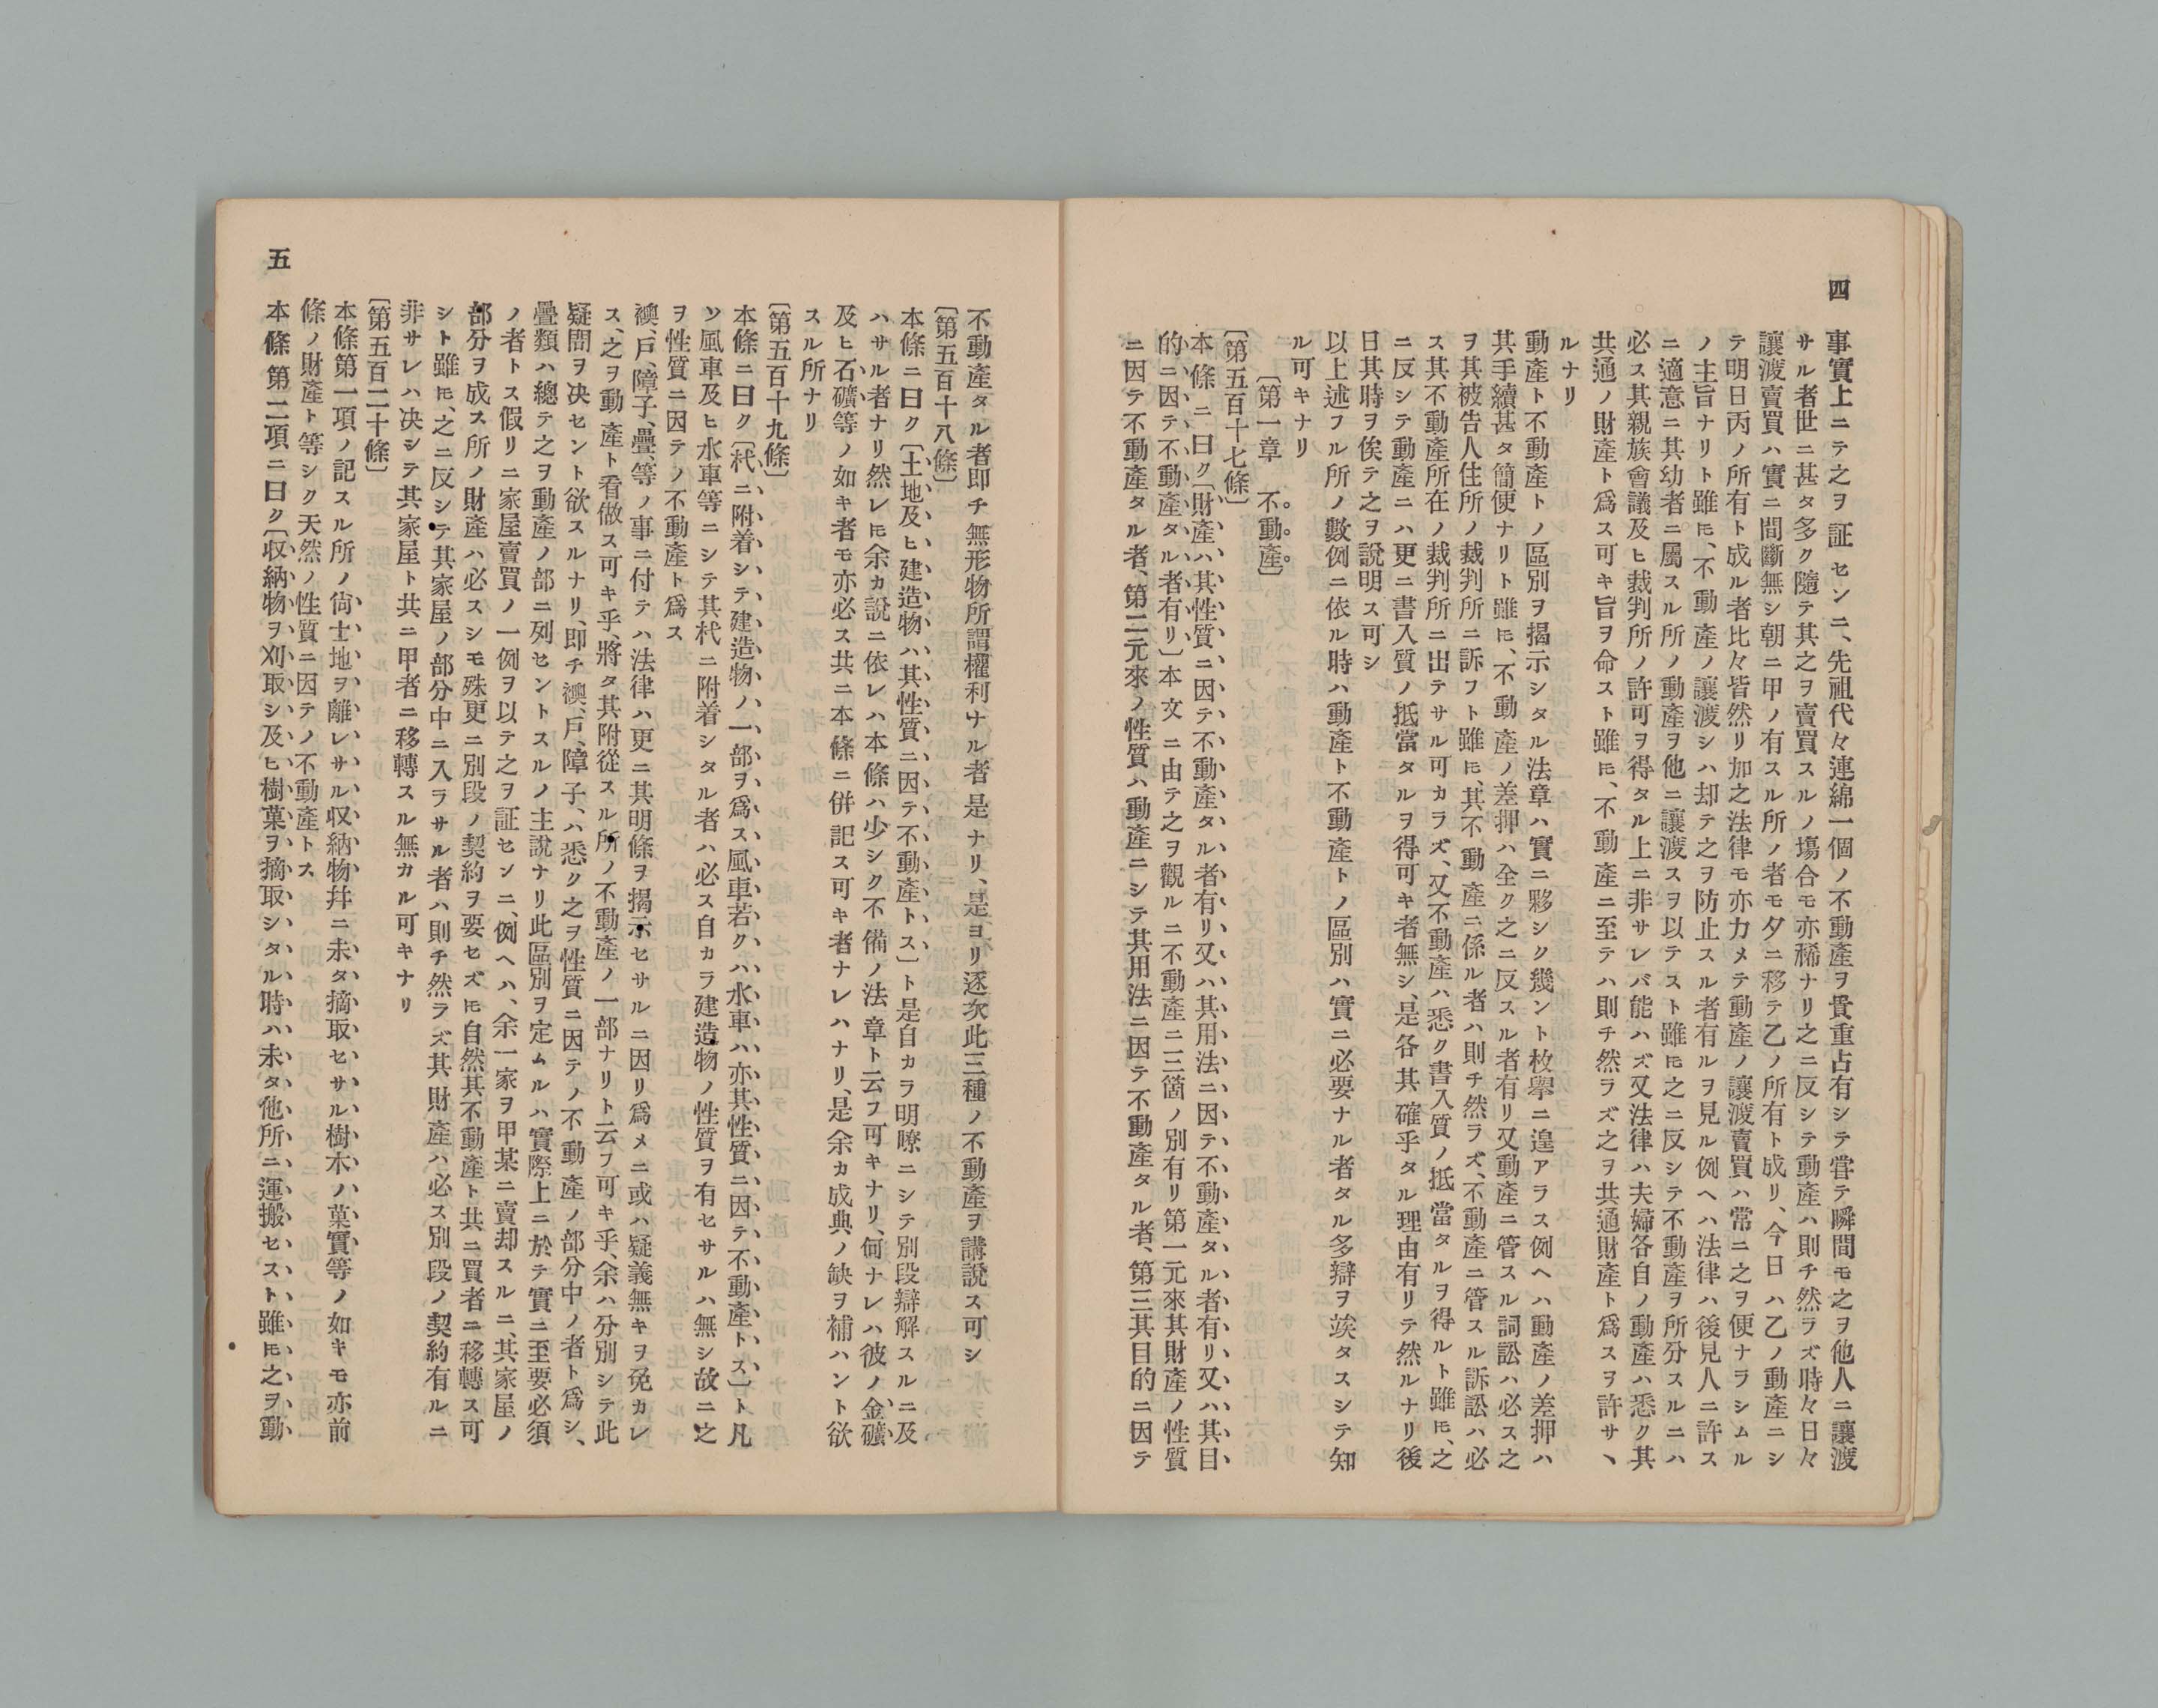 四
事實上ニテ之ヲ証センニ、先祖代々連綿一個ノ不動產ヲ貴重占有シテ嘗テ瞬間モ之ヲ他人ニ讓渡
サル者世ニ甚タ多ク隨テ其之ヲ賣買スルノ塲合モ亦稀ナリ之ニ反シテ動產ハ則チ然ラズ時々日々
讓渡賣買ハ實ニ間斷無シ朝ニ甲ノ有スル所ノ者モ夕ニ移テ乙ノ所有ト成リ、今日ハ乙ノ動產ニシ
テ明日丙ノ所有ト成ル者比々皆然リ加之法律モ亦力メテ動產ノ讓渡賣買ハ常ニ之ヲ便ナラシムル
ノ主旨ナリト雖𪜈、不動產ノ讓渡シハ却テ之ヲ防止スル者有ルヲ見ル例ヘハ法律ハ後見人ニ許ス
ニ適意ニ其幼者ニ屬スル所ノ動產ヲ他ニ讓渡スヲ以テスト雖𪜈之ニ反シテ不動產ヲ所分スルニハ
必ス其親族會議及ヒ裁判所ノ許可ヲ得タル上ニ非サレバ能ハズ又法律ハ夫婦各自ノ動產ハ悉ク其
共通ノ財產ト爲ス可キ旨ヲ命スト雖𪜈、不動產ニ至テハ則チ然ラズ之ヲ共通財產ト爲スヲ許サヽ
ルナリ
動產ト不動產トノ區別ヲ揭示シタル法章ハ實ニ夥シク幾ント枚擧ニ遑アラス例ヘハ動產ノ差押ハ
其手續甚タ簡便ナリト雖𪜈、不動產ノ差押ハ全ク之ニ反スル者有リ又動產ニ管スル詞訟ハ必ス之
ヲ其被告人住所ノ裁判所ニ訴フト雖𪜈、其不動產ニ係ル者ハ則チ然ラズ、不動產ニ管スル訴訟ハ必
ス其不動產所在ノ裁判所ニ出テサル可カラズ、又不動產ハ悉ク書入質ノ抵當タルヲ得ルト雖𪜈、之
ニ反シテ動產ニハ更ニ書入質ノ抵當タルヲ得可キ者無シ、是各其確乎タル理由有リテ然ルナリ後
日其時ヲ俟テ之ヲ說明ス可シ
以上述フル所ノ數例ニ依ル時ハ動產ト不動產トノ區別ハ實ニ必要ナル者タル多辯ヲ竢タスシテ知
ル可キナリ
〔第一章　不動產〕
〔第五百十七條〕
本條ニ曰ク〔財產ハ其性質ニ因テ不動產タル者有リ又ハ其用法ニ因テ不動產タル者有リ又ハ其目
的ニ因テ不動產タル者有リ〕本文ニ由テ之ヲ觀ルニ不動產ニ三箇ノ別有リ第一元來其財產ノ性質
ニ因テ不動產タル者、第二元來ノ性質ハ動產ニシテ其用法ニ因テ不動產タル者、第三其目的ニ因テ
不動產タル者即チ無形物所謂權利ナル者是ナリ、是ヨリ逐次此三種ノ不動產ヲ講說ス可シ
〔第五百十八條〕
本條ニ曰ク〔土地及ヒ建造物ハ其性質ニ因テ不動產トス〕ト是自カラ明瞭ニシテ別段辯解スルニ及
ハサル者ナリ然レ𪜈余カ說ニ依レハ本條ハ少シク不備ノ法章ト云フ可キナリ、何ナレハ彼ノ金礦
及ヒ石礦等ノ如キ者モ亦必ス共ニ本條ニ併記ス可キ者ナレハナリ、是余カ成典ノ缺ヲ補ハント欲
スル所ナリ
〔第五百十九條〕
本條ニ曰ク〔杙ニ附着シテ建造物ノ一部ヲ爲ス風車若クハ水車ハ亦其性質ニ因テ不動產トス〕ト凡
ソ風車及ヒ水車等ニシテ其杙ニ附着シタル者ハ必ス自カラ建造物ノ性質ヲ有セサルハ無シ故ニ之
ヲ性質ニ因テノ不動產ト爲ス
澳、戶、障子、疊等ノ事ニ付テハ法律ハ更ニ其明條ヲ揭示セサルニ因リ爲メニ或ハ疑義無キヲ免カレ
ス、之ヲ動產ト看做ス可キ乎、將タ其附從スル所ノ不動產ノ一部ナリト云フ可キ乎、余ハ分別シテ此
疑問ヲ决セント欲スルナリ、即チ澳、戶、障子、ハ悉ク之ヲ性質ニ因テノ不動產ノ部分中ノ者ト爲シ、
疊類ハ總テ之ヲ動產ノ部ニ列セントスルノ主說ナリ此區別ヲ定ムルハ實際上ニ於テ實ニ至要必須
ノ者トス假リニ家屋賣買ノ一例ヲ以テ之ヲ証センニ、例ヘハ、余一家ヲ甲某ニ賣却スルニ、其家屋ノ
部分ヲ成ス所ノ財產ハ必スシモ殊更ニ別段ノ契約ヲ要セズ𪜈自然其不動產ト共ニ買者ニ移轉ス可
シト雖𪜈、之ニ反シテ其家屋ノ部分中ニ入ラサル者ハ則チ然ラズ其財產ハ必ス別段ノ契約有ルニ
非サレハ决シテ其家屋ト共ニ甲者ニ移轉スル無カル可キナリ
〔第五百二十條〕
本條第一項ノ記スル所ノ尙土地ヲ離レサル収納物幷ニ未タ摘取セサル樹木ノ菓實等ノ如キモ亦前
條ノ財產ト等シク天然ノ性質ニ因テノ不動產トス
本條第二項ニ曰ク〔収納物ヲ刈取シ及ヒ樹菓ヲ摘取シタル時ハ未タ他所ニ運搬セスト雖𪜈之ヲ動
五